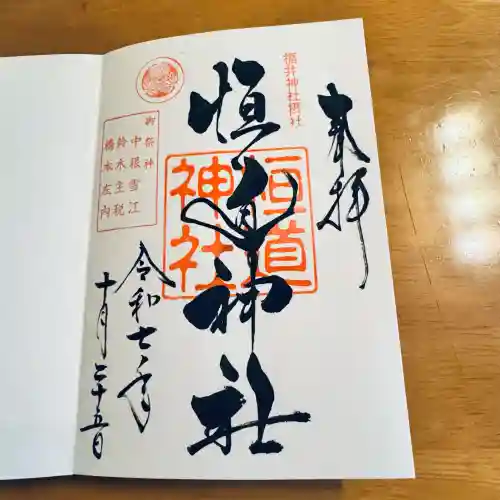 奉拝
福井神社摂社
恒道神社
恒道
神社
御祭神
中根雪江
鈴木主税
橋本左内
令和七年
十月二十五日